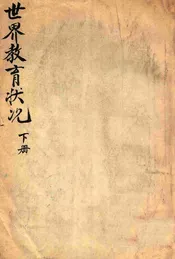 世界教育状况
下册